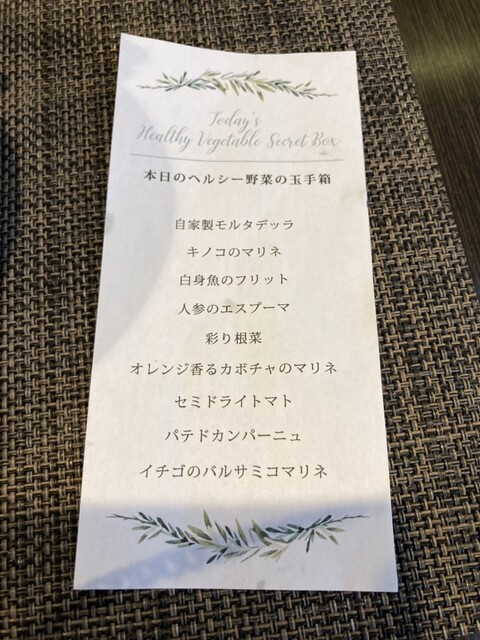 Today's
Healthy Vegetable Secret Box
本日のヘルシー野菜の玉手箱
自家製モルタデッラ
キノコのマリネ
白身魚のフリット
人参のエスプーマ
彩り根菜
オレンジ香るカボチャのマリネ
セミドライトマト
パテドカンパーニュ
イチゴのバルサミコマリネ